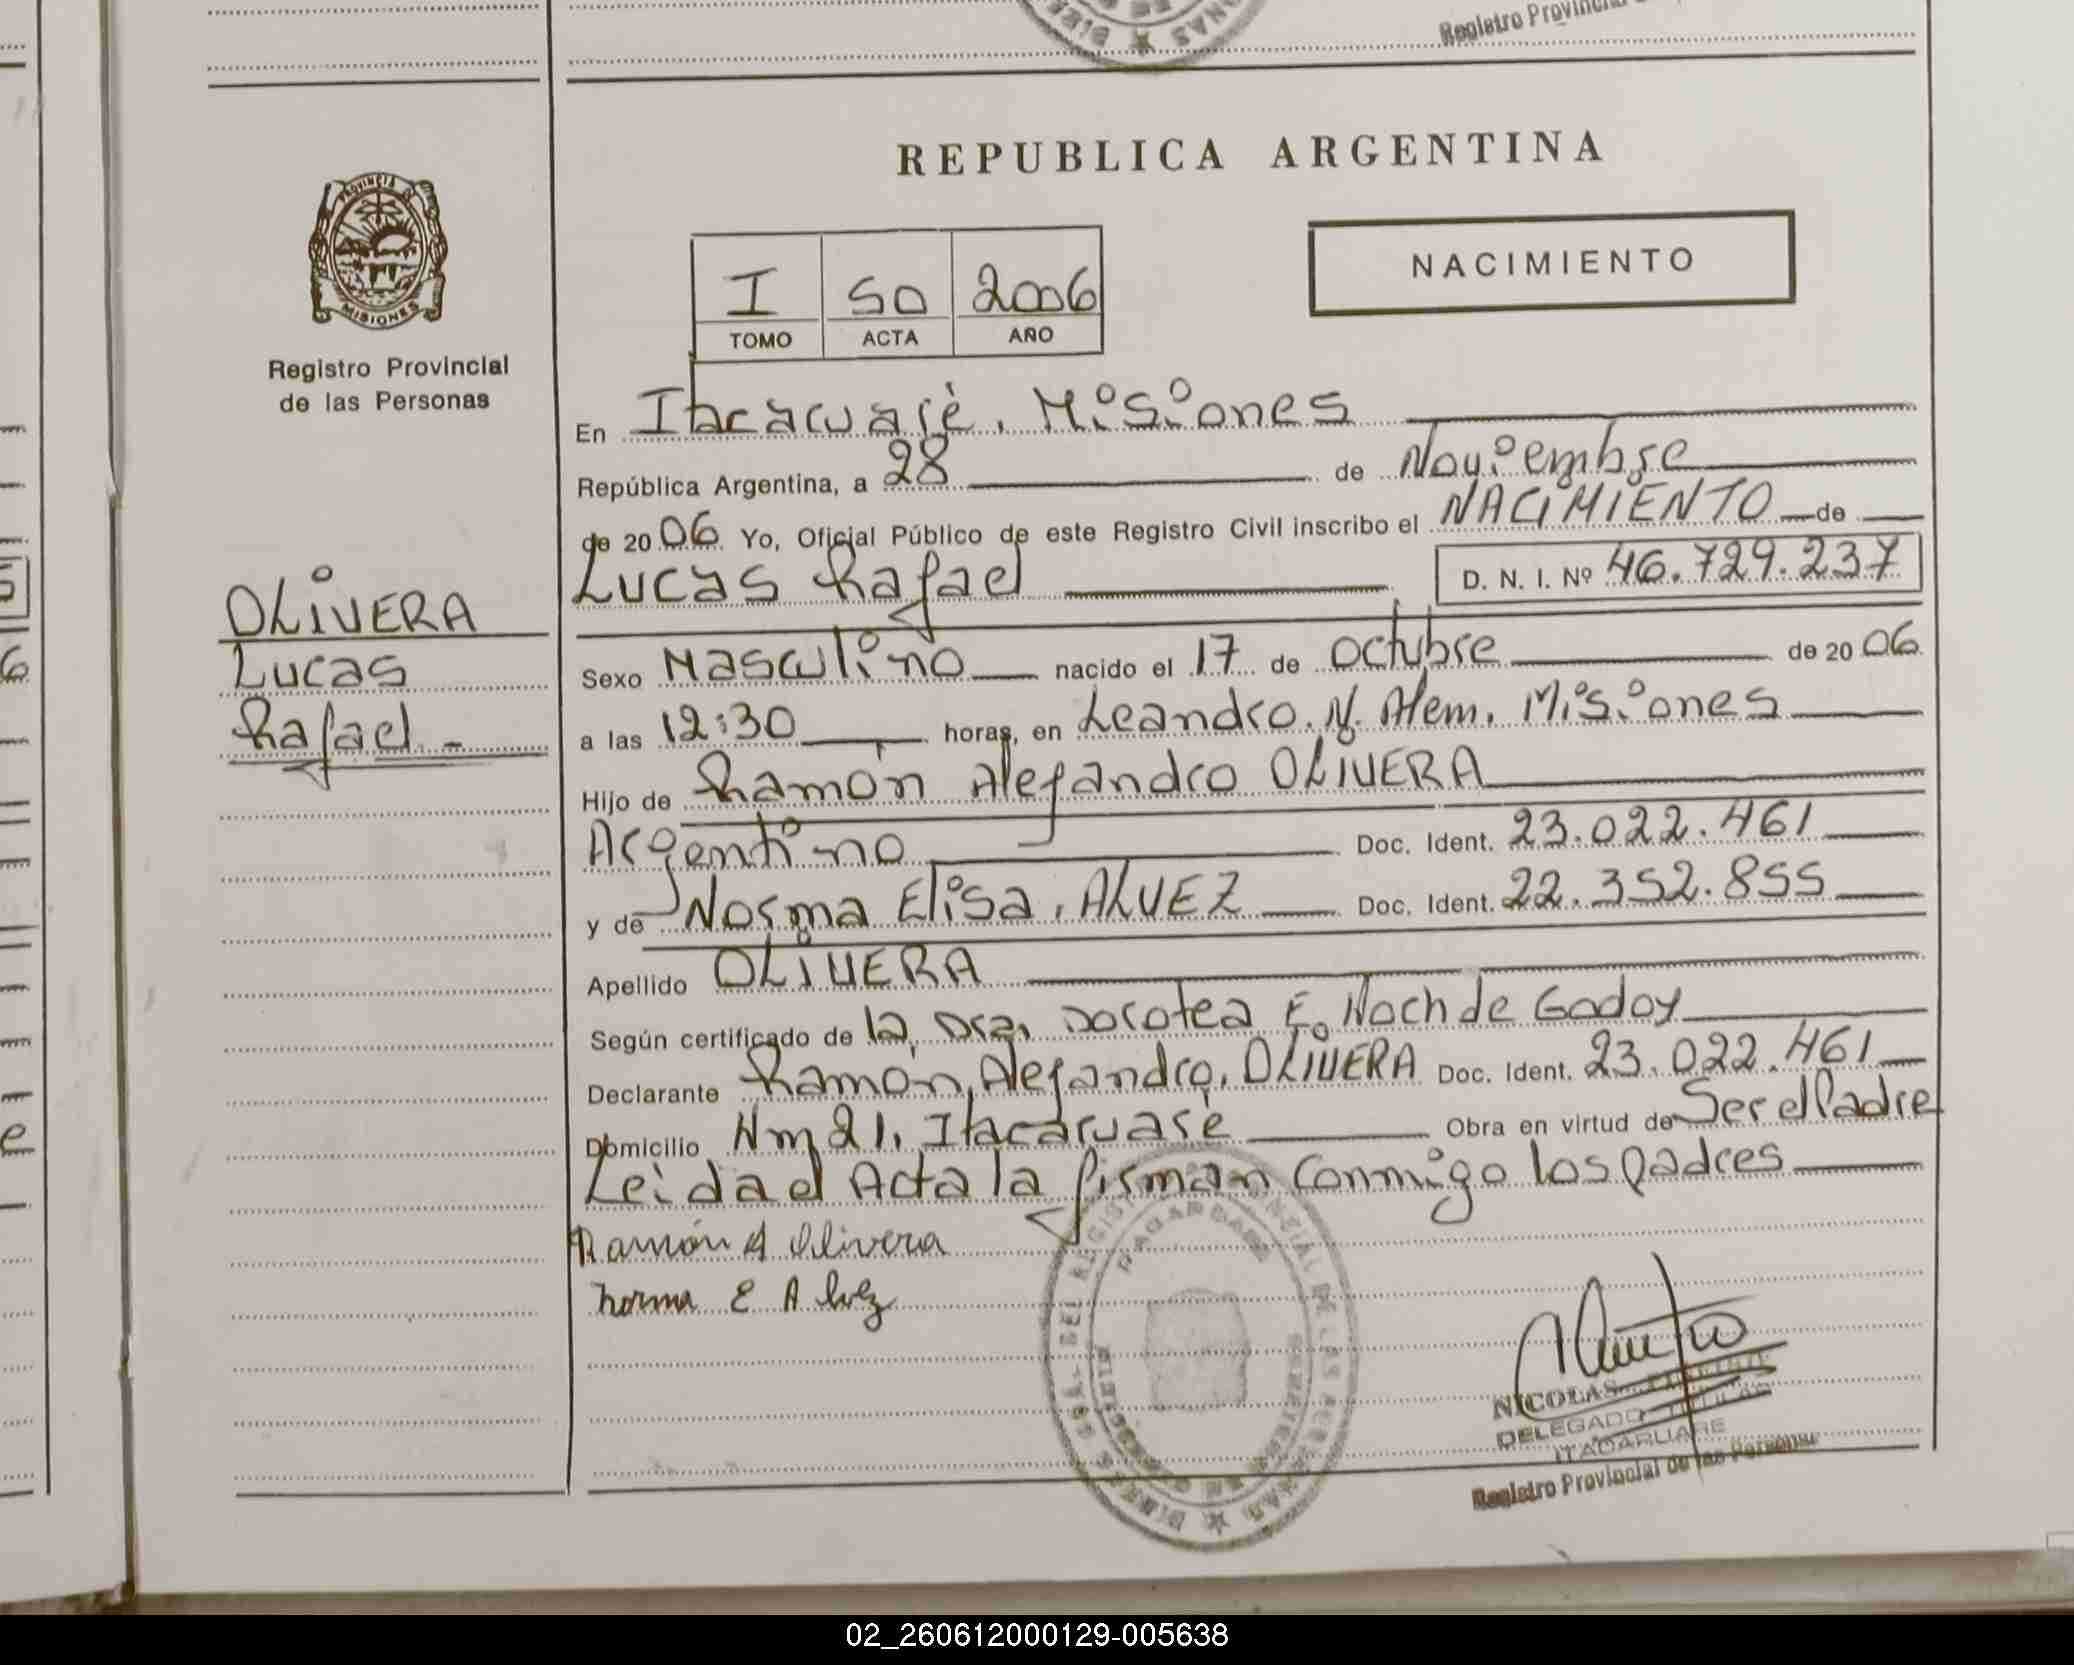 Registro Provincial
REPUBLICA ARGENTINA
PROVINCIA DE
MISIONES
Registro Provincial
de las Personas
I SO 2006
TOMO ACTA AÑO
NACIMIENTO
En Itacaruaré, Misiones
República Argentina, a 28 de Noviembre
de 2006 Yo, Oficial Público de este Registro Civil inscribo el NACIMIENTO de
Lucas Rafael D. N. I. Nº 46.729.237
OLIVERA
Lucas
Rafael.-
Sexo Masculino nacido el 17 de octubre de 2006
a las 12:30 horas, en Leandro. N. Alem. Misiones
Hijo de Ramón Alejandro OLIVERA
Argentino Doc. Ident. 23.022.461
y de Norma Elisa, ALVEZ Doc. Ident. 22.352.855
Apellido OLIVERA
Según certificado de la Dra. Dorotea E. Noch de Godoy
Declarante Ramón, Alejandro, OLIVERA Doc. Ident. 23.022.461
Domicilio Nm 21, Itacaruaré Obra en virtud de Ser el Padre
Leida el Acta la firman conmigo los padres
Ramón A Olivera
Norma E Alvez
NICOLAS
DELEGADO TITULAR
ITACARUARE
Registro Provincial de las Personas
02_260612000129-005638